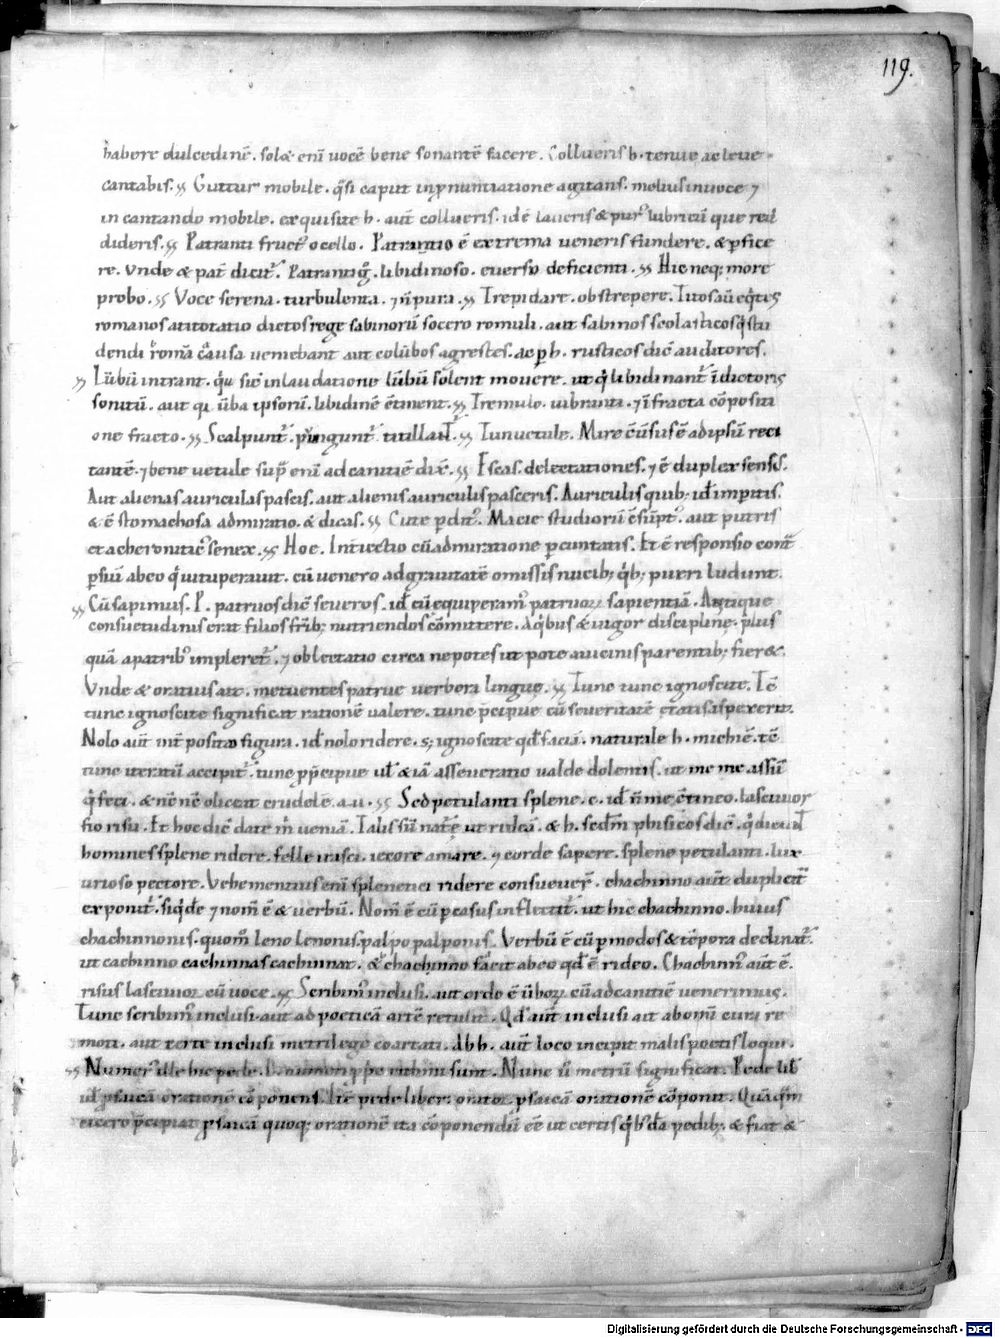 119.
habere dulcedinē. solā enī vocē bene sonantē facere. Collueris .h. tenue ac leve
cantabis. Guttur mobile. q̄si caput in p̱nuntiatione agitans. melius in voce ⁊
in cantando mobile. exquisite .h. aut̄ collueris. idē laveris & pur
dideris. Patranti fruct᾽ ocello. Patratio ē extrema veneris fundere. & p̱fice
re. Vnde & pat̄ dicit᾽. Patranti g̊. libidinoso. everso deficienti. Hic neq; more
probo. Voce serena. turbulenta. ⁊ īpura. Trepidare. obstrepere. Titos
romanos a titotatio dictos rege sabinorū socero romuli. aut sabinos scolasticos
dendi causa veniebant aut colūbos agrestes. ac p̱ h. rusticos dic̄ auditores.
Lūbū intrant. sic̄ in laudatione lūbū solent movere. ut libidinant᾽
sonitū. aut qi v̄ba ipsorū. libidinē ētinent. Tremulo. vibranti. ⁊ īfracta cōpositi
one fracto. Scalpunt᾽. pungunt᾽. titillant᾽. Tun vetule. Mire c̄versus ē ad ipsū reci
tantē. ⁊ bene vetule sup̄ enī ad canitiē dix̄. Escas. delectationes. ⁊ ē duplex sensꝰ.
Aut alienas auriculas pascis. aut alienis auriculis pasceris. Auriculis quib;
& ē stomachosa admiratio. & dicas. Cute p̱dit᾽. Macie studiorū aut putris
et acheronticꝰ senex. Hoc. Iniectio cū admiratione p̱cuntatis. Et ē responsio cont̄
p̱siū ab eo q̊ vituperavit. cū venero ad gravitatē omissis nucib; q̊b; pueri ludunt.
Cū sapimus. P. patruos dic̄ severos. id̄ cū equiperam᾽ patruoꝝ sapientiā. Antique
consuetudinis erat filios frīb; nutriendos cōmittere. A q̊bus & vigor discipline. plus
quā a patrib᾽ impleret᾽. ⁊ oblectatio circa nepotes ut pote a vicinis parentib; fier&.
Vnde & oratius ait. metuentes patrue verbera lingue. Tunc tunc ignoscite. Tē
tunc ignoscite significat rationē valere. tunc p̄cipue cū severitatē
Nolo aut̄ int̄ posita figura. id̄ nolo ridere. s; ignoscite qd̄ faciā. naturale .h. michi ē. tē
tunc iteratū accipit᾽. tunc p̄cipue ut & iā asseveratio valde dolentis. ut me me. assū
q̊ feci. & nē nē olicat crudele. a. v. Sed petulanti splene. c. id̄
fio risu. Et hoc dic̄ date m̄ veniā. Talis sū ut rideā. & h. scd̄m phisicos dic̄. q̊ dicunt
homines splene ridere. felle irasci. iecore amare. ⁊ corde sapere. splene petulanti. lux
urioso pectore. Vehementius enī splenetici ridere consuever̄. chachinno aut̄ duplicit̄
exponit᾽. siq̊de ⁊ nom̄ ē & verbū. Nom̄ ē cū p̱ casus inflectit᾽. ut hic chachinno. huius
chachinnonis. quom̄ leno lenonis. palpo palponis. Verbū ē cū p̱ modos & tēpora declinat᾽.
ut cachinno cachinnas cachinnat. & chachinno facit ab eo qd̄ ē rideo. Chachinn᾽ aut̄ ē.
risus lascivior cū voce. Scribim᾽ inclusi. aut ordo ē v̄boꝝ cū ad canitiē venerimus.
Tunc scribim᾽ inclusi. aut ad poeticā artē retulit. Qd̄ aut̄ inclusi ait ab omī cura re
moti. aut certe inclusi metri lege coartati. Ab h. aut̄ loco incipit malis poetis loqui.
Numer᾽ ille hic pede. L. numeri p̱p̱e rithmi sunt. Nunc v̄ metrū significat. Pede lib̄
ul p̱saicā orationē cōponens. Itē pede liber. orator. p̱saicā orationē cōponit. Quāq̊m
cicero p̄cipiat p̱saicā quoq; orationē ita cōponendū eē ut certis q̊b᾽dā pedib; & fiat &
Digitalisierung gefördert durch die Deutsche Forschungsgemeinschaft - DFG